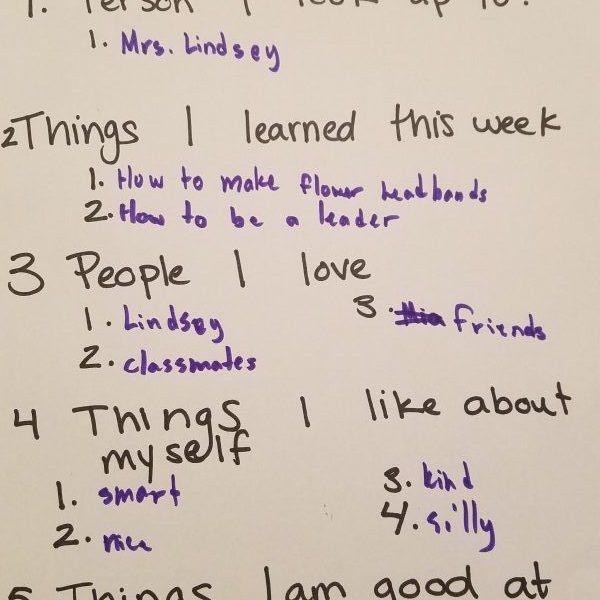 1. Person I look up to:
1. Mrs. Lindsey
2 Things I learned this week
1. How to make flower headbands
2. How to be a leader
3 People I love
1. Lindsey
2. classmates
3. friends
4 Things I like about
myself
1. smart
2. nice
3. kind
4. silly
5 Things I am good at